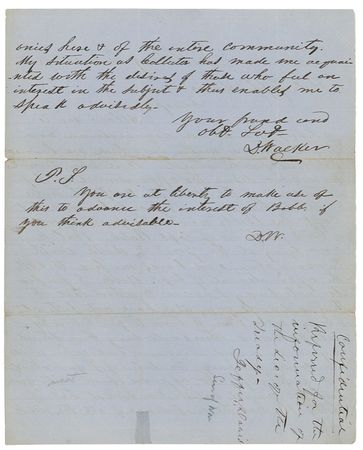 onies here & of the entire community.
My situation as Collector has made me acquai
nted with the desires of those who feel an
interest in the subject & thus enabled me to
speak advisedly.
Your friend and
obt. Svt.
D. Walker
P.S
You are at liberty to make use of
this to advance the interest of Bobb if
you think advisable.
D.W.
Confidential
Referred for the
information of
the Secy of the
Treasy.
Jeffn. Davis
Secy of War